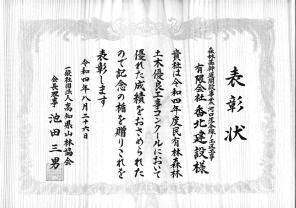 表彰状
有限会社 香北建設様
貴社は令和四年度民有林森林
土木優良工事コンクールにおいて
優れた成績をおさめられた
ので記念の楯を贈りこれを
表彰します
令和四年八月二十六日
一般社団法人高知県山林協会
会長理事 池田三男